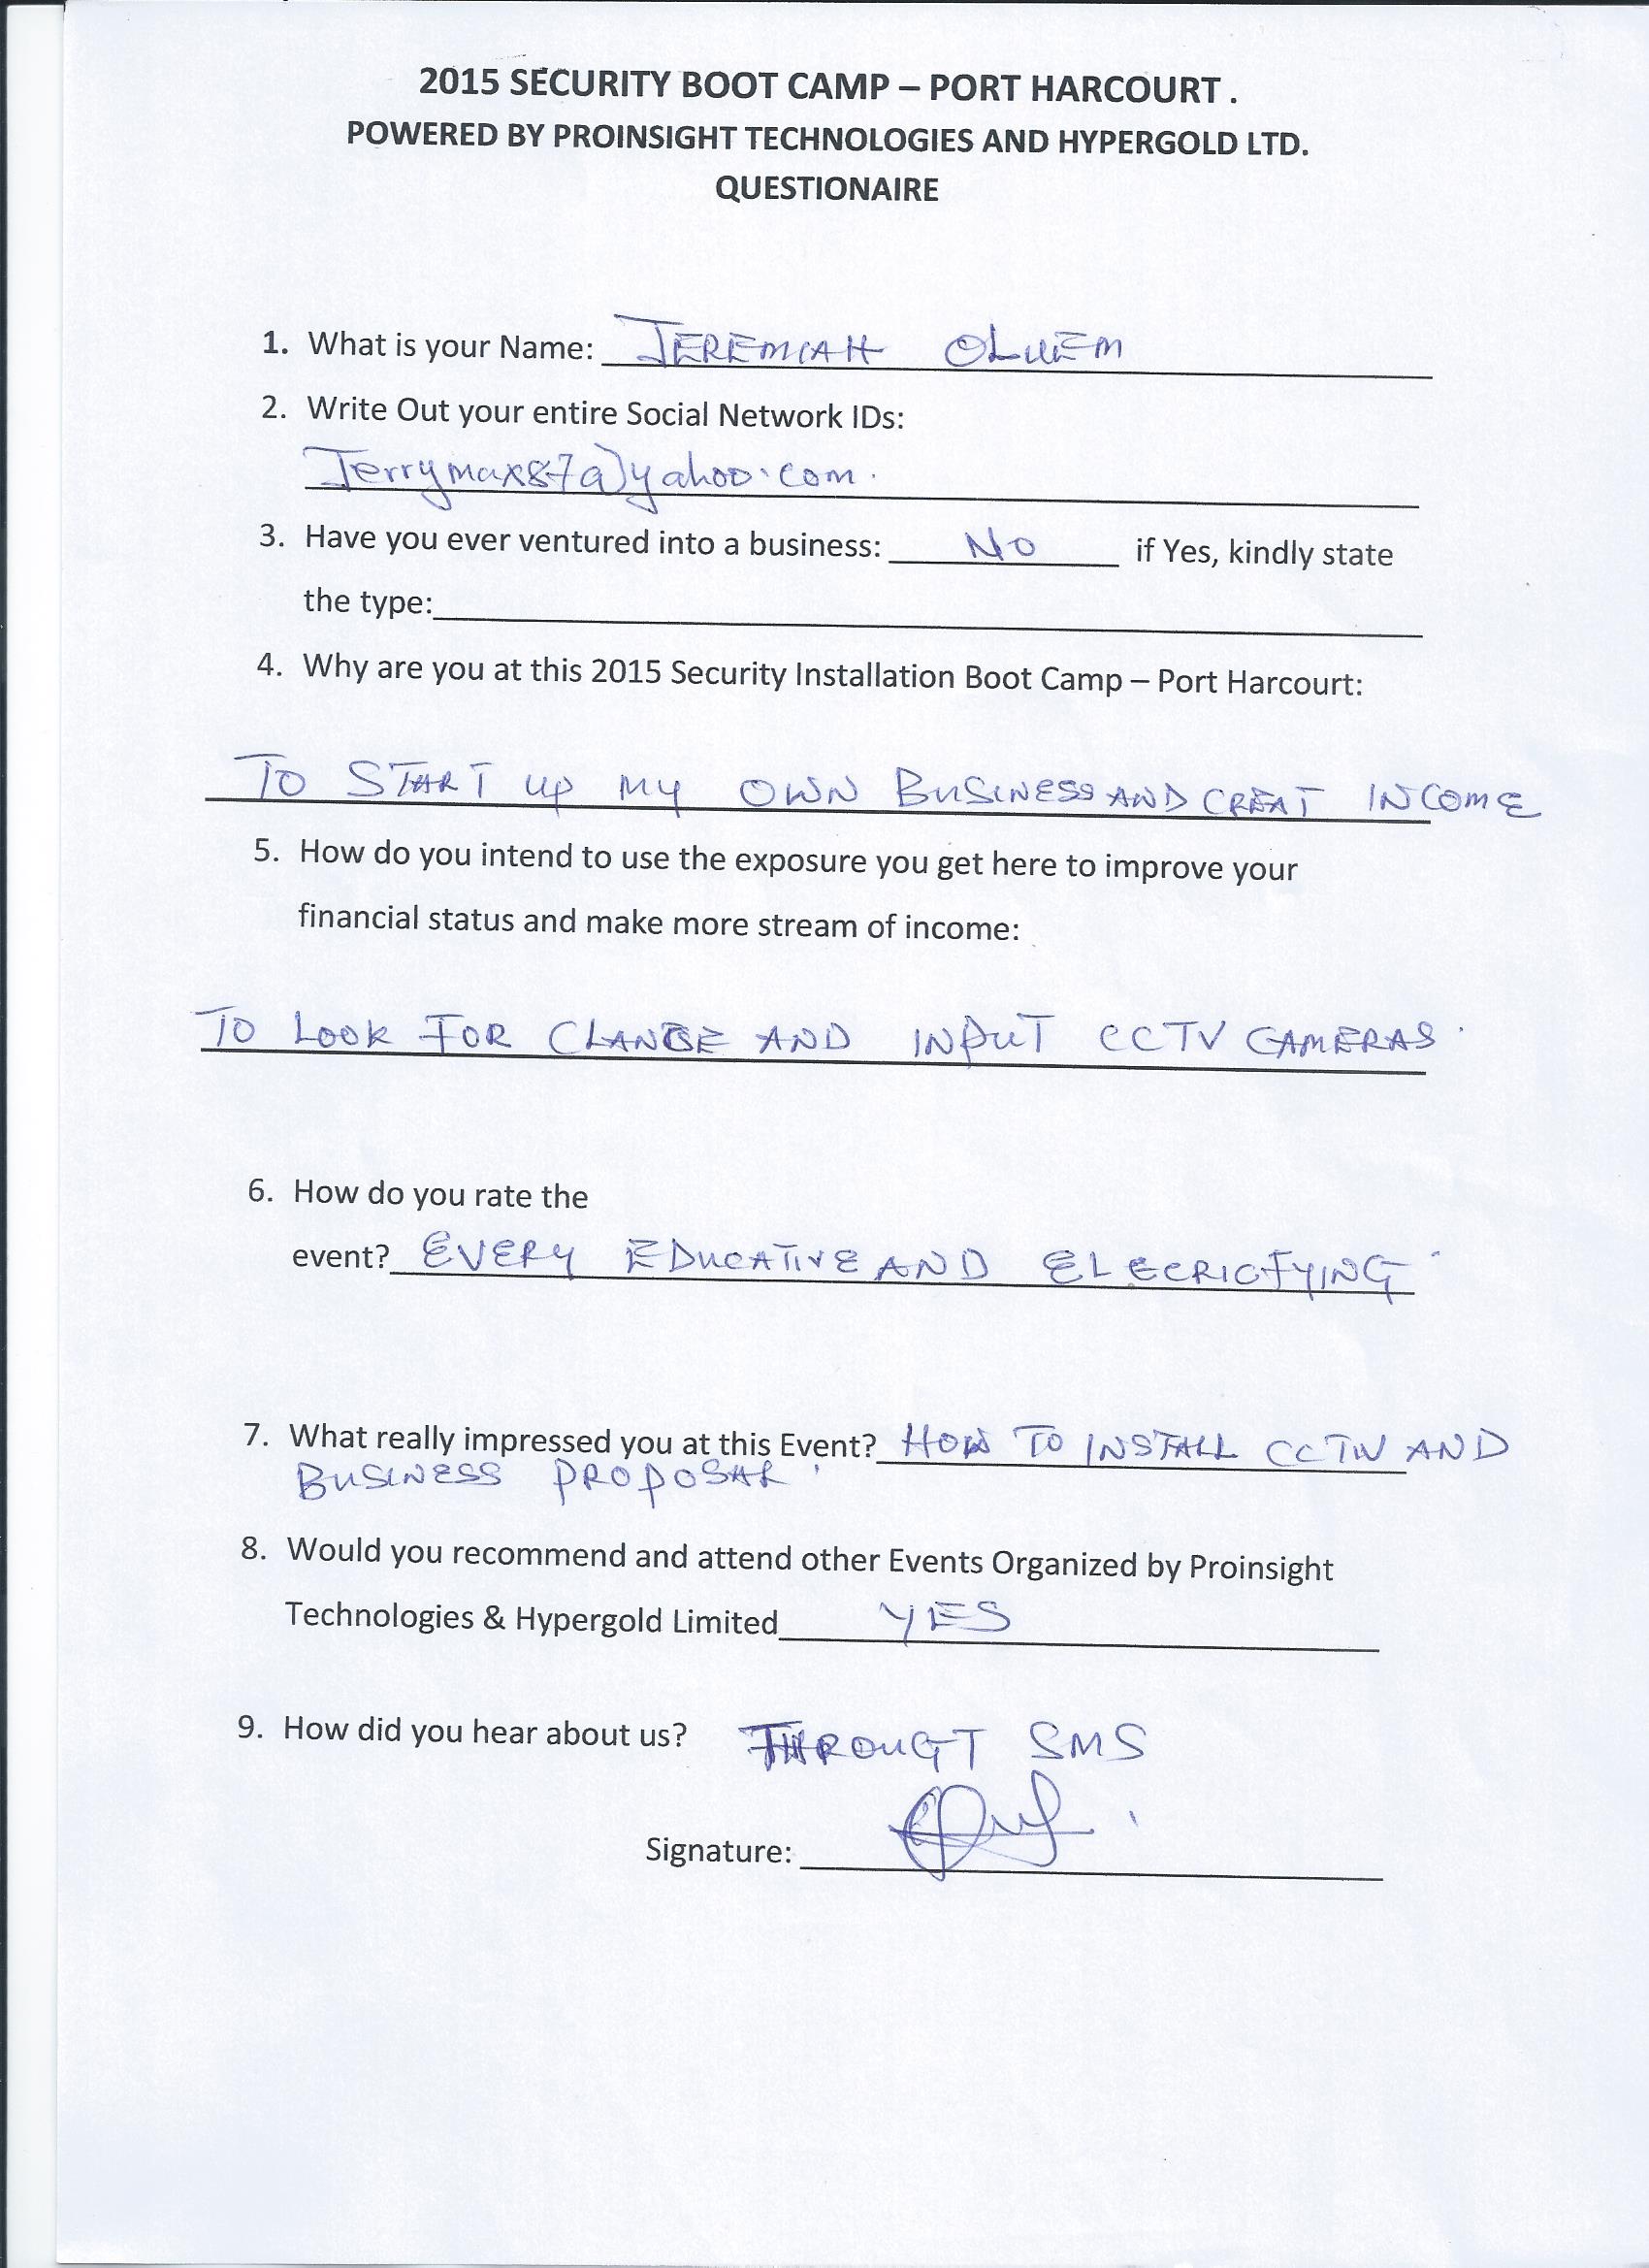 2015 SECURITY BOOT CAMP – PORT HARCOURT .
POWERED BY PROINSIGHT TECHNOLOGIES AND HYPERGOLD LTD.
QUESTIONAIRE
1. What is your Name: JEREMIAH
2. Write Out your entire Social Network IDs:
Jerrymax87@yahoo.com.
3. Have you ever ventured into a business: NO if Yes, kindly state
the type:
4. Why are you at this 2015 Security Installation Boot Camp – Port Harcourt:
TO START UP MY OWN BUSINESS AND CREAT INCOME
5. How do you intend to use the exposure you get here to improve your
financial status and make more stream of income:
TO LOOK FOR AND INPUT CCTV CAMERAS.
6. How do you rate the
event? EVERY EDUCATIVE AND ELECRICFYING
7. What really impressed you at this Event? HOW TO INSTALL CCTV AND
BUSINESS PROPOSAR.
8. Would you recommend and attend other Events Organized by Proinsight
Technologies & Hypergold Limited YES
9. How did you hear about us? THROUGT SMS
Signature: